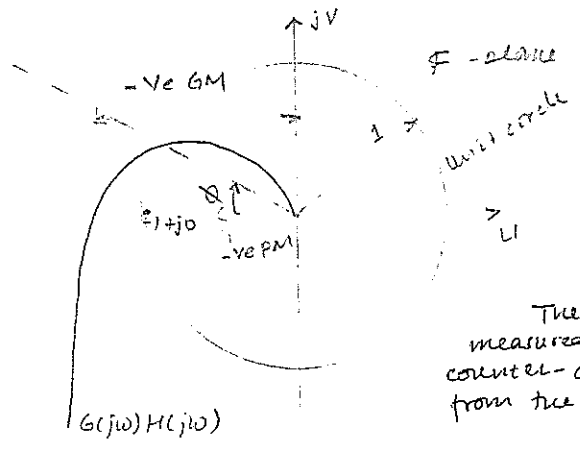 jV
-Ve GM
F -plane
1
Unit circle
-1+j0
Φ
-ve PM
U
The
measured
counter-c
from the
G(jω)H(jω)